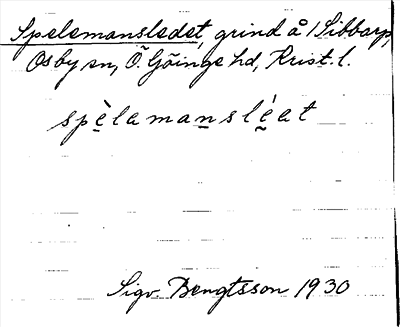 Spelemansledet, grind å 1 Sibbarp,
Osby sn, Ö Göinge hd, Krist. l.
spèlamansléat
Sigv. Bengtsson 1930